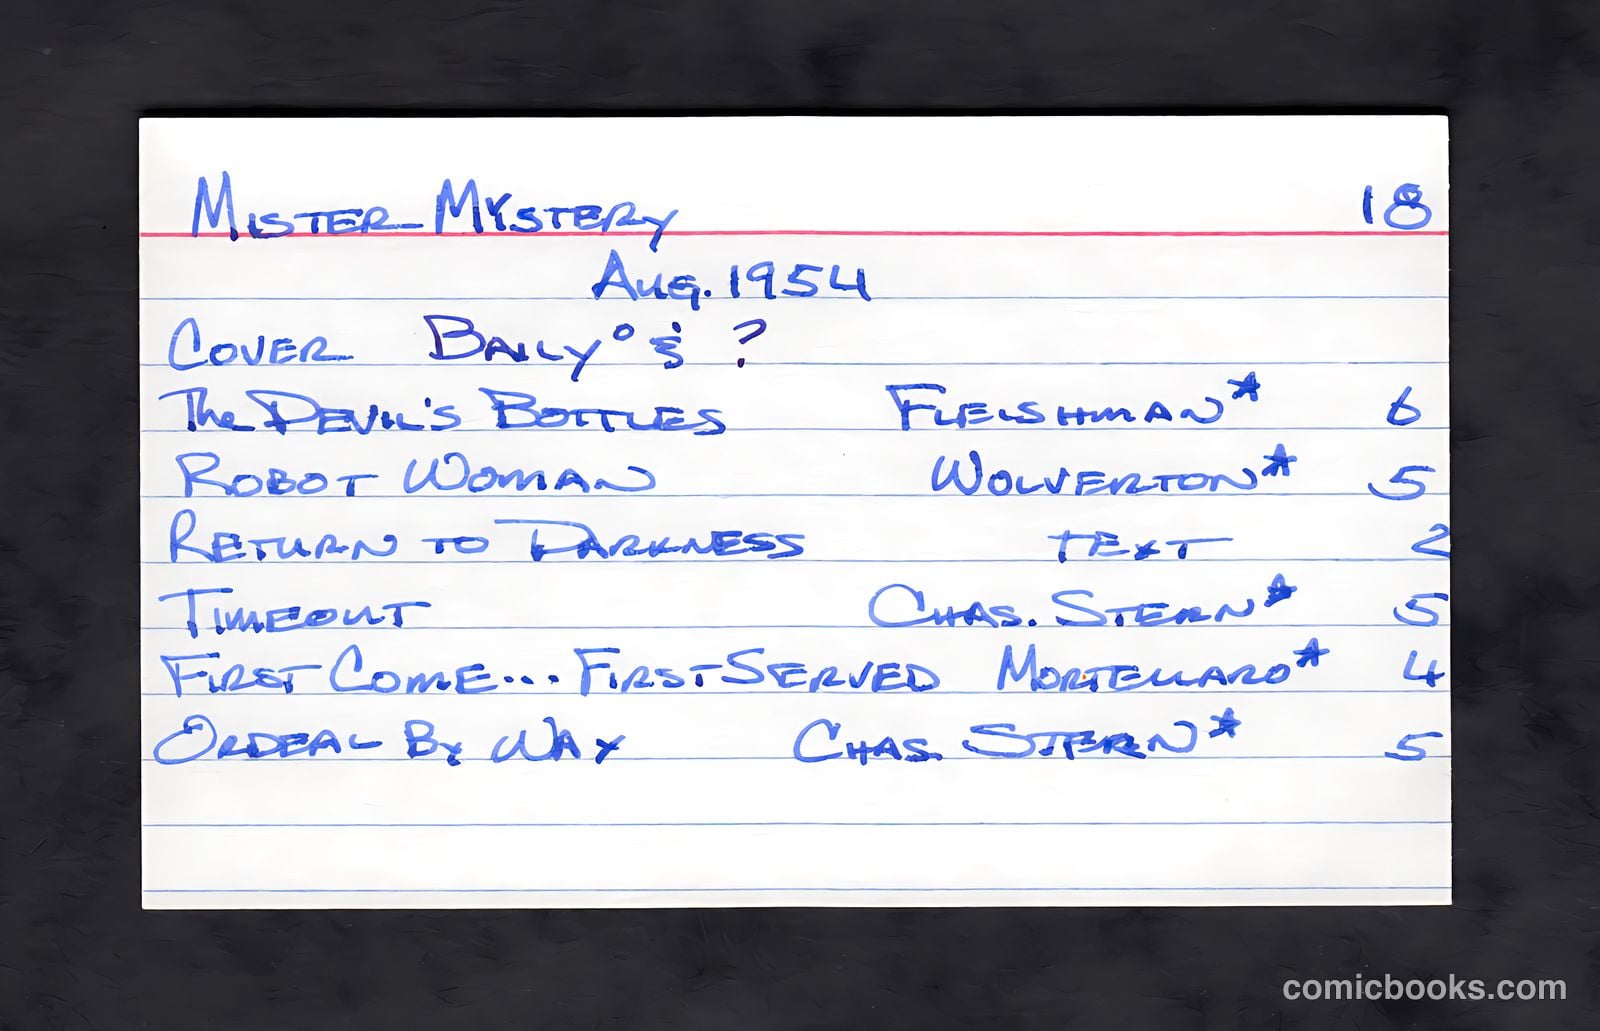 Mister Mystery 18
Aug. 1954
Cover Baily° & ?
The Devil's Bottles Fleishman* 6
Robot Woman Wolverton* 5
Return to Darkness text 2
Timeout Chas. Stern* 5
First Come... First Served Mortellaro* 4
Ordeal By Wax Chas. Stern* 5
comicbooks.com